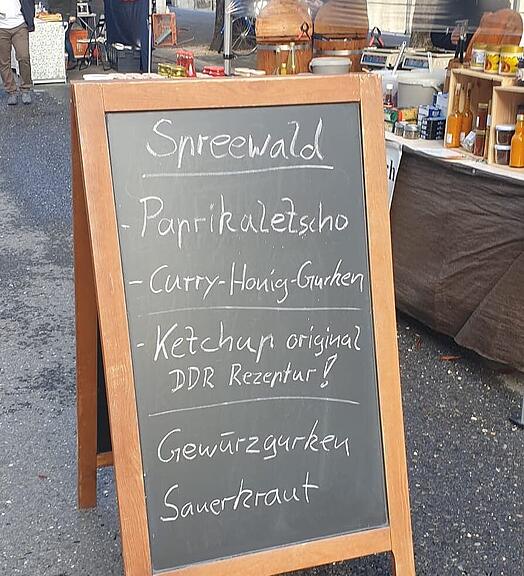 Spreewald
- Paprikaletscho
- Curry-Honig-Gurken
- Ketchup original
DDR Rezeptur!
Gewürzgurken
Sauerkraut